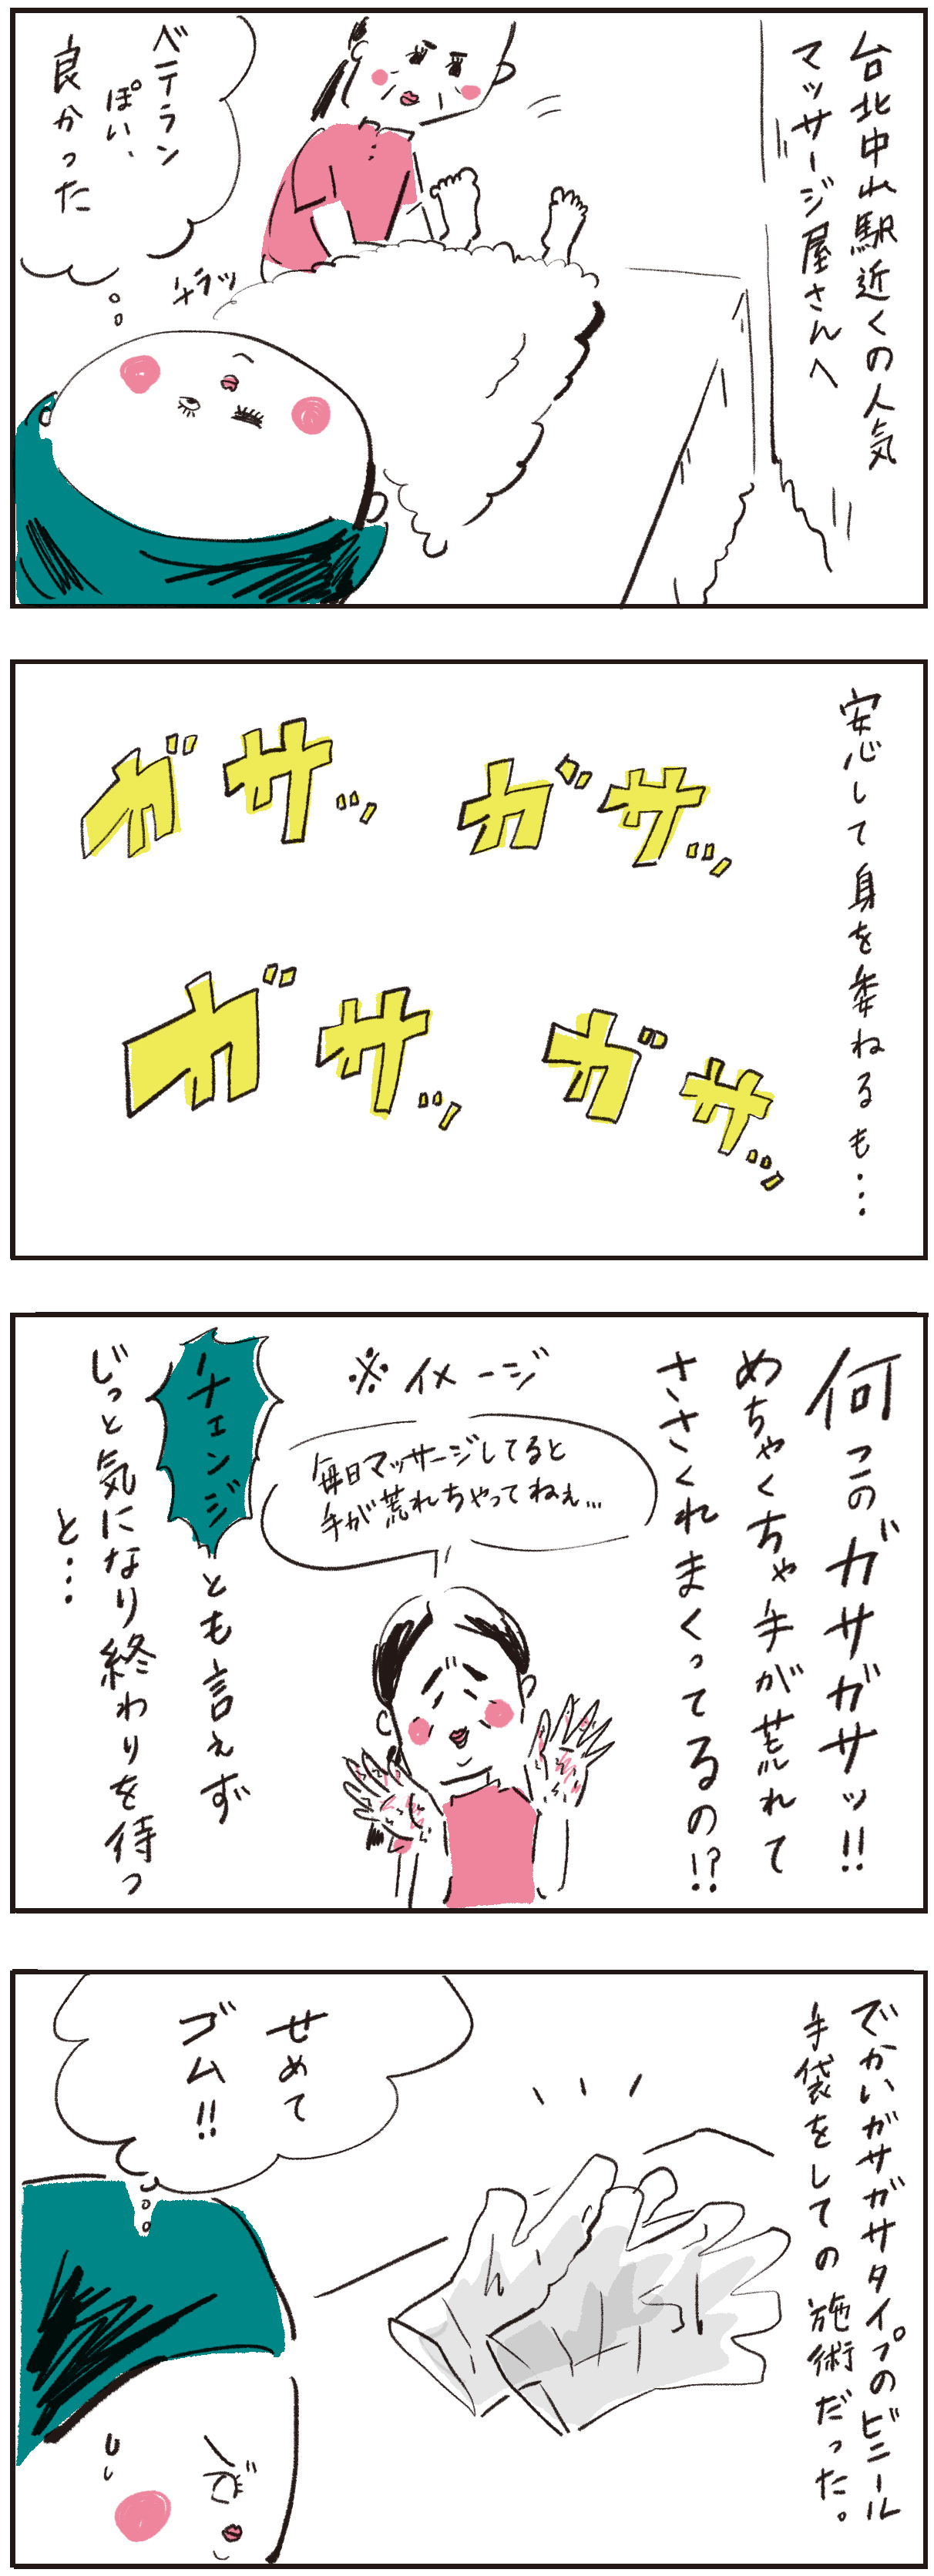 台北中山駅近くの人気
マッサージ屋さんへ
ベテラン
ぽい、
良かった
チラッ
安心して身を委ねるも…
ガサッ
ガサッ
ガサッ
ガサッ
何このガサガサッ!!
めちゃくちゃ手が荒れて
ささくれまくってるの!?
※イメージ
毎日マッサージしてると
手が荒れちゃってねぇ…
チェンジとも言えず
じっと気になり終わりを待つ
と…
でかいガサガサタイプのビニール
手袋をしての施術だった。
せめて
ゴム!!